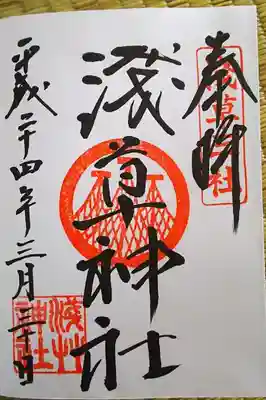 奉拝
淺草神社
平成二十四年三月三十日
淺草神社